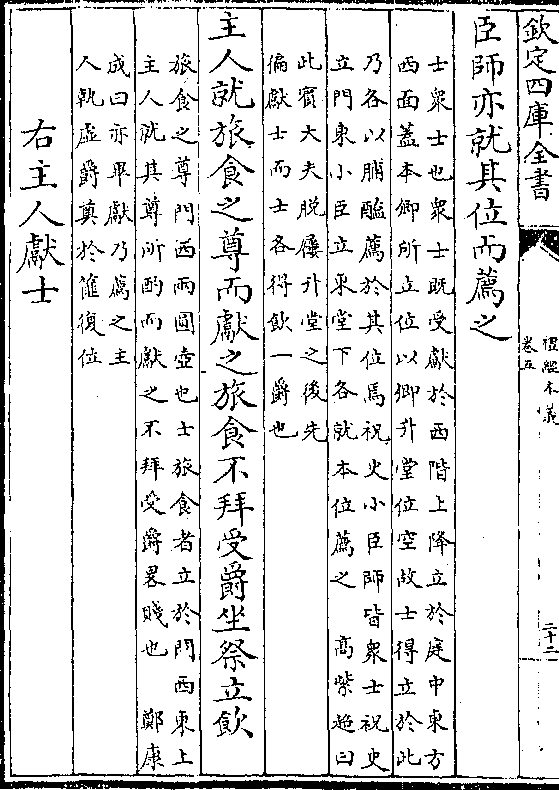 欽定四庫全書
禮經本義
卷五
二十二
臣師亦就其位而薦之
士衆士也衆士既受獻於西階上降立於庭中東方
西面蓋本卿所立位以卿升堂位空故士得立於此
乃各以脯醢薦於其位焉祝史小臣師皆衆士祝史
立門東小臣立東堂下各就本位薦之　高紫超曰
此賓大夫脱屨升堂之後先
徧獻士而士各得飲一爵也
主人就旅食之尊而獻之旅食不拜受爵坐祭立飲
旅食之尊門西兩圜壺也士旅食者立於門西東上
主人就其尊所酌而獻之不拜受爵畧賤也　鄭康
成曰亦畢獻乃薦之主
人執虚爵奠於篚復位
右主人獻士